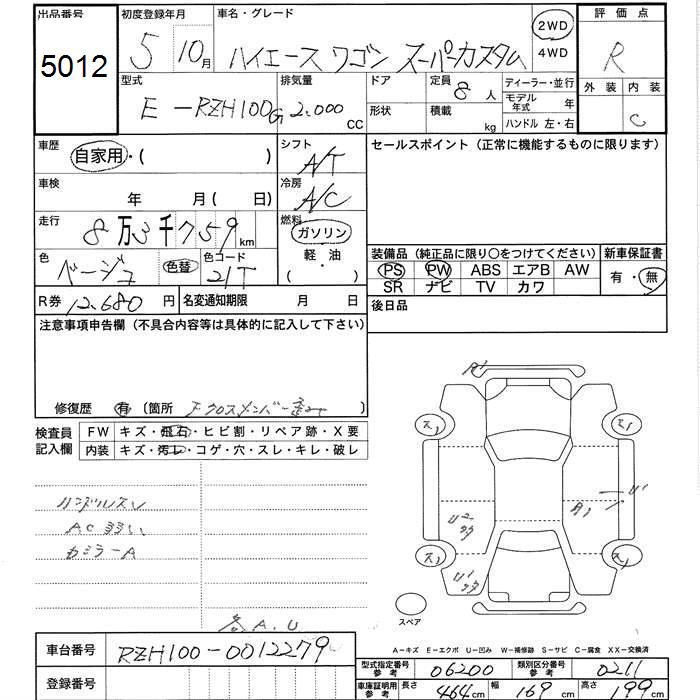 出品番号 初度登録年月 車名・グレード 2WD 4WD 評価点
5012 5 10月 ハイエース ワゴン スーパーカスタム R
型式 排気量 ドア 定員 ディーラー・並行 外装 内装
E-RZH100G 2.000 CC 形状 積載 8人 kg モデル年式 年 ハンドル 左・右 C
車歴 自家用・( ) シフト A/T セールスポイント (正常に機能するものに限ります)
車検 年 月( 日) 冷房 A/C
走行 8万3千759km 燃料 ガソリン 軽油 ( )
色 ベージュ 色替 色コード 21T
装備品 (純正品に限り○をつけてください) 新車保証書
PS PW ABS エアB AW 有・無
SR ナビ TV カワ
R券 12.680円 名変通知期限 月 日 後日品
注意事項申告欄 (不具合内容等は具体的に記入して下さい)
修復歴 有 (箇所 Fクロスメンバー
検査員記入欄 FW キズ・飛石・ヒビ割・リペア跡・X要
内装 キズ・汚レ・コゲ・穴・スレ・キレ・破レ
ハンドルスレ
AC
A
各A.U
A1
U2
U1
A1
U1
スペア
A-キズ E-エクボ U-凹み W-補修跡 S-サビ C-腐食 XX-交換済
車台番号 RZH100-0012279
登録番号
型式指定番号 参考 06200 類別区分番号 参考 0211
車庫証明用 参考 長さ 464cm 幅 169cm 高さ 199cm